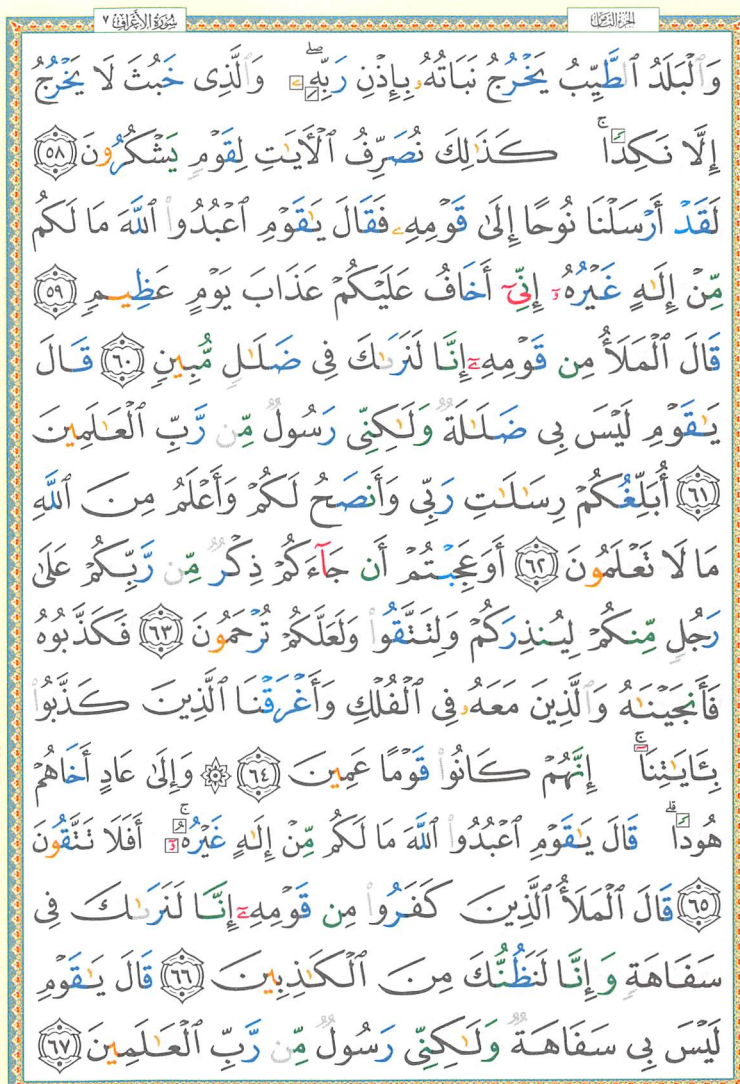 سُورَةُ الأَعْرَافِ ٧ الجزء الثامن
وَٱلْبَلَدُ ٱلطَّيِّبُ يَخْرُجُ نَبَاتُهُۥ بِإِذْنِ رَبِّهِۦۖ وَٱلَّذِى خَبُثَ لَا يَخْرُجُ
إِلَّا نَكِدًاۚ كَذَٰلِكَ نُصَرِّفُ ٱلْأَيَـٰتِ لِقَوْمٍ يَشْكُرُونَ ٥٨
لَقَدْ أَرْسَلْنَا نُوحًا إِلَىٰ قَوْمِهِۦ فَقَالَ يَـٰقَوْمِ ٱعْبُدُوا۟ ٱللَّهَ مَا لَكُم
مِّنْ إِلَـٰهٍ غَيْرُهُۥٓ إِنِّىٓ أَخَافُ عَلَيْكُمْ عَذَابَ يَوْمٍ عَظِيمٍ ٥٩
قَالَ ٱلْمَلَأُ مِن قَوْمِهِۦٓ إِنَّا لَنَرَىٰكَ فِى ضَلَـٰلٍ مُّبِينٍ ٦٠ قَالَ
يَـٰقَوْمِ لَيْسَ بِى ضَلَـٰلَةٌ وَلَـٰكِنِّى رَسُولٌ مِّن رَّبِّ ٱلْعَـٰلَمِينَ
٦١ أُبَلِّغُكُمْ رِسَـٰلَـٰتِ رَبِّى وَأَنصَحُ لَكُمْ وَأَعْلَمُ مِنَ ٱللَّهِ
مَا لَا تَعْلَمُونَ ٦٢ أَوَعَجِبْتُمْ أَن جَآءَكُمْ ذِكْرٌ مِّن رَّبِّكُمْ عَلَىٰ
رَجُلٍ مِّنكُمْ لِيُنذِرَكُمْ وَلِتَتَّقُوا۟ وَلَعَلَّكُمْ تُرْحَمُونَ ٦٣ فَكَذَّبُوهُ
فَأَنجَيْنَـٰهُ وَٱلَّذِينَ مَعَهُۥ فِى ٱلْفُلْكِ وَأَغْرَقْنَا ٱلَّذِينَ كَذَّبُوا۟
بِـَٔايَـٰتِنَآۚ إِنَّهُمْ كَانُوا۟ قَوْمًا عَمِينَ ٦٤ ۞ وَإِلَىٰ عَادٍ أَخَاهُمْ
هُودًاۗ قَالَ يَـٰقَوْمِ ٱعْبُدُوا۟ ٱللَّهَ مَا لَكُم مِّنْ إِلَـٰهٍ غَيْرُهُۥٓۚ أَفَلَا تَتَّقُونَ
٦٥ قَالَ ٱلْمَلَأُ ٱلَّذِينَ كَفَرُوا۟ مِن قَوْمِهِۦٓ إِنَّا لَنَرَىٰكَ فِى
سَفَاهَةٍ وَإِنَّا لَنَظُنُّكَ مِنَ ٱلْكَـٰذِبِينَ ٦٦ قَالَ يَـٰقَوْمِ
لَيْسَ بِى سَفَاهَةٌ وَلَـٰكِنِّى رَسُولٌ مِّن رَّبِّ ٱلْعَـٰلَمِينَ ٦٧